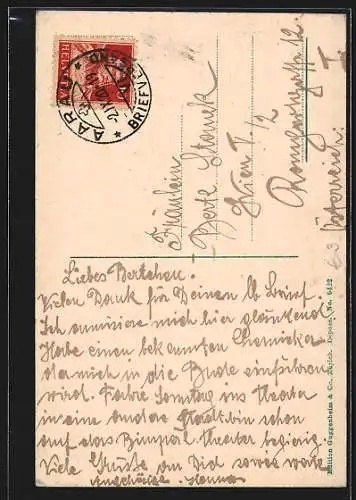 HELVETIA
AARAU
BRIEFVERSAND
2.IX.
Fräulein
Berte Stauck
Wien I. 1/2
Österreich.
Liebes Bertchen.
Vielen Dank für Deinen lb Brief.
Ich amüsiere mich hier glänzend
Habe einen bekannten Chemiker
da mich in die Bude einführen
wird. Fahre Sonntag ins Theater
in eine andere Stadt. bin schon
auf das Theater begierig.
Viele Grüsse an Dich sowie werte
Angehörige.
Edition Guggenheim & Co., Zürich. Dépose. No. 6442